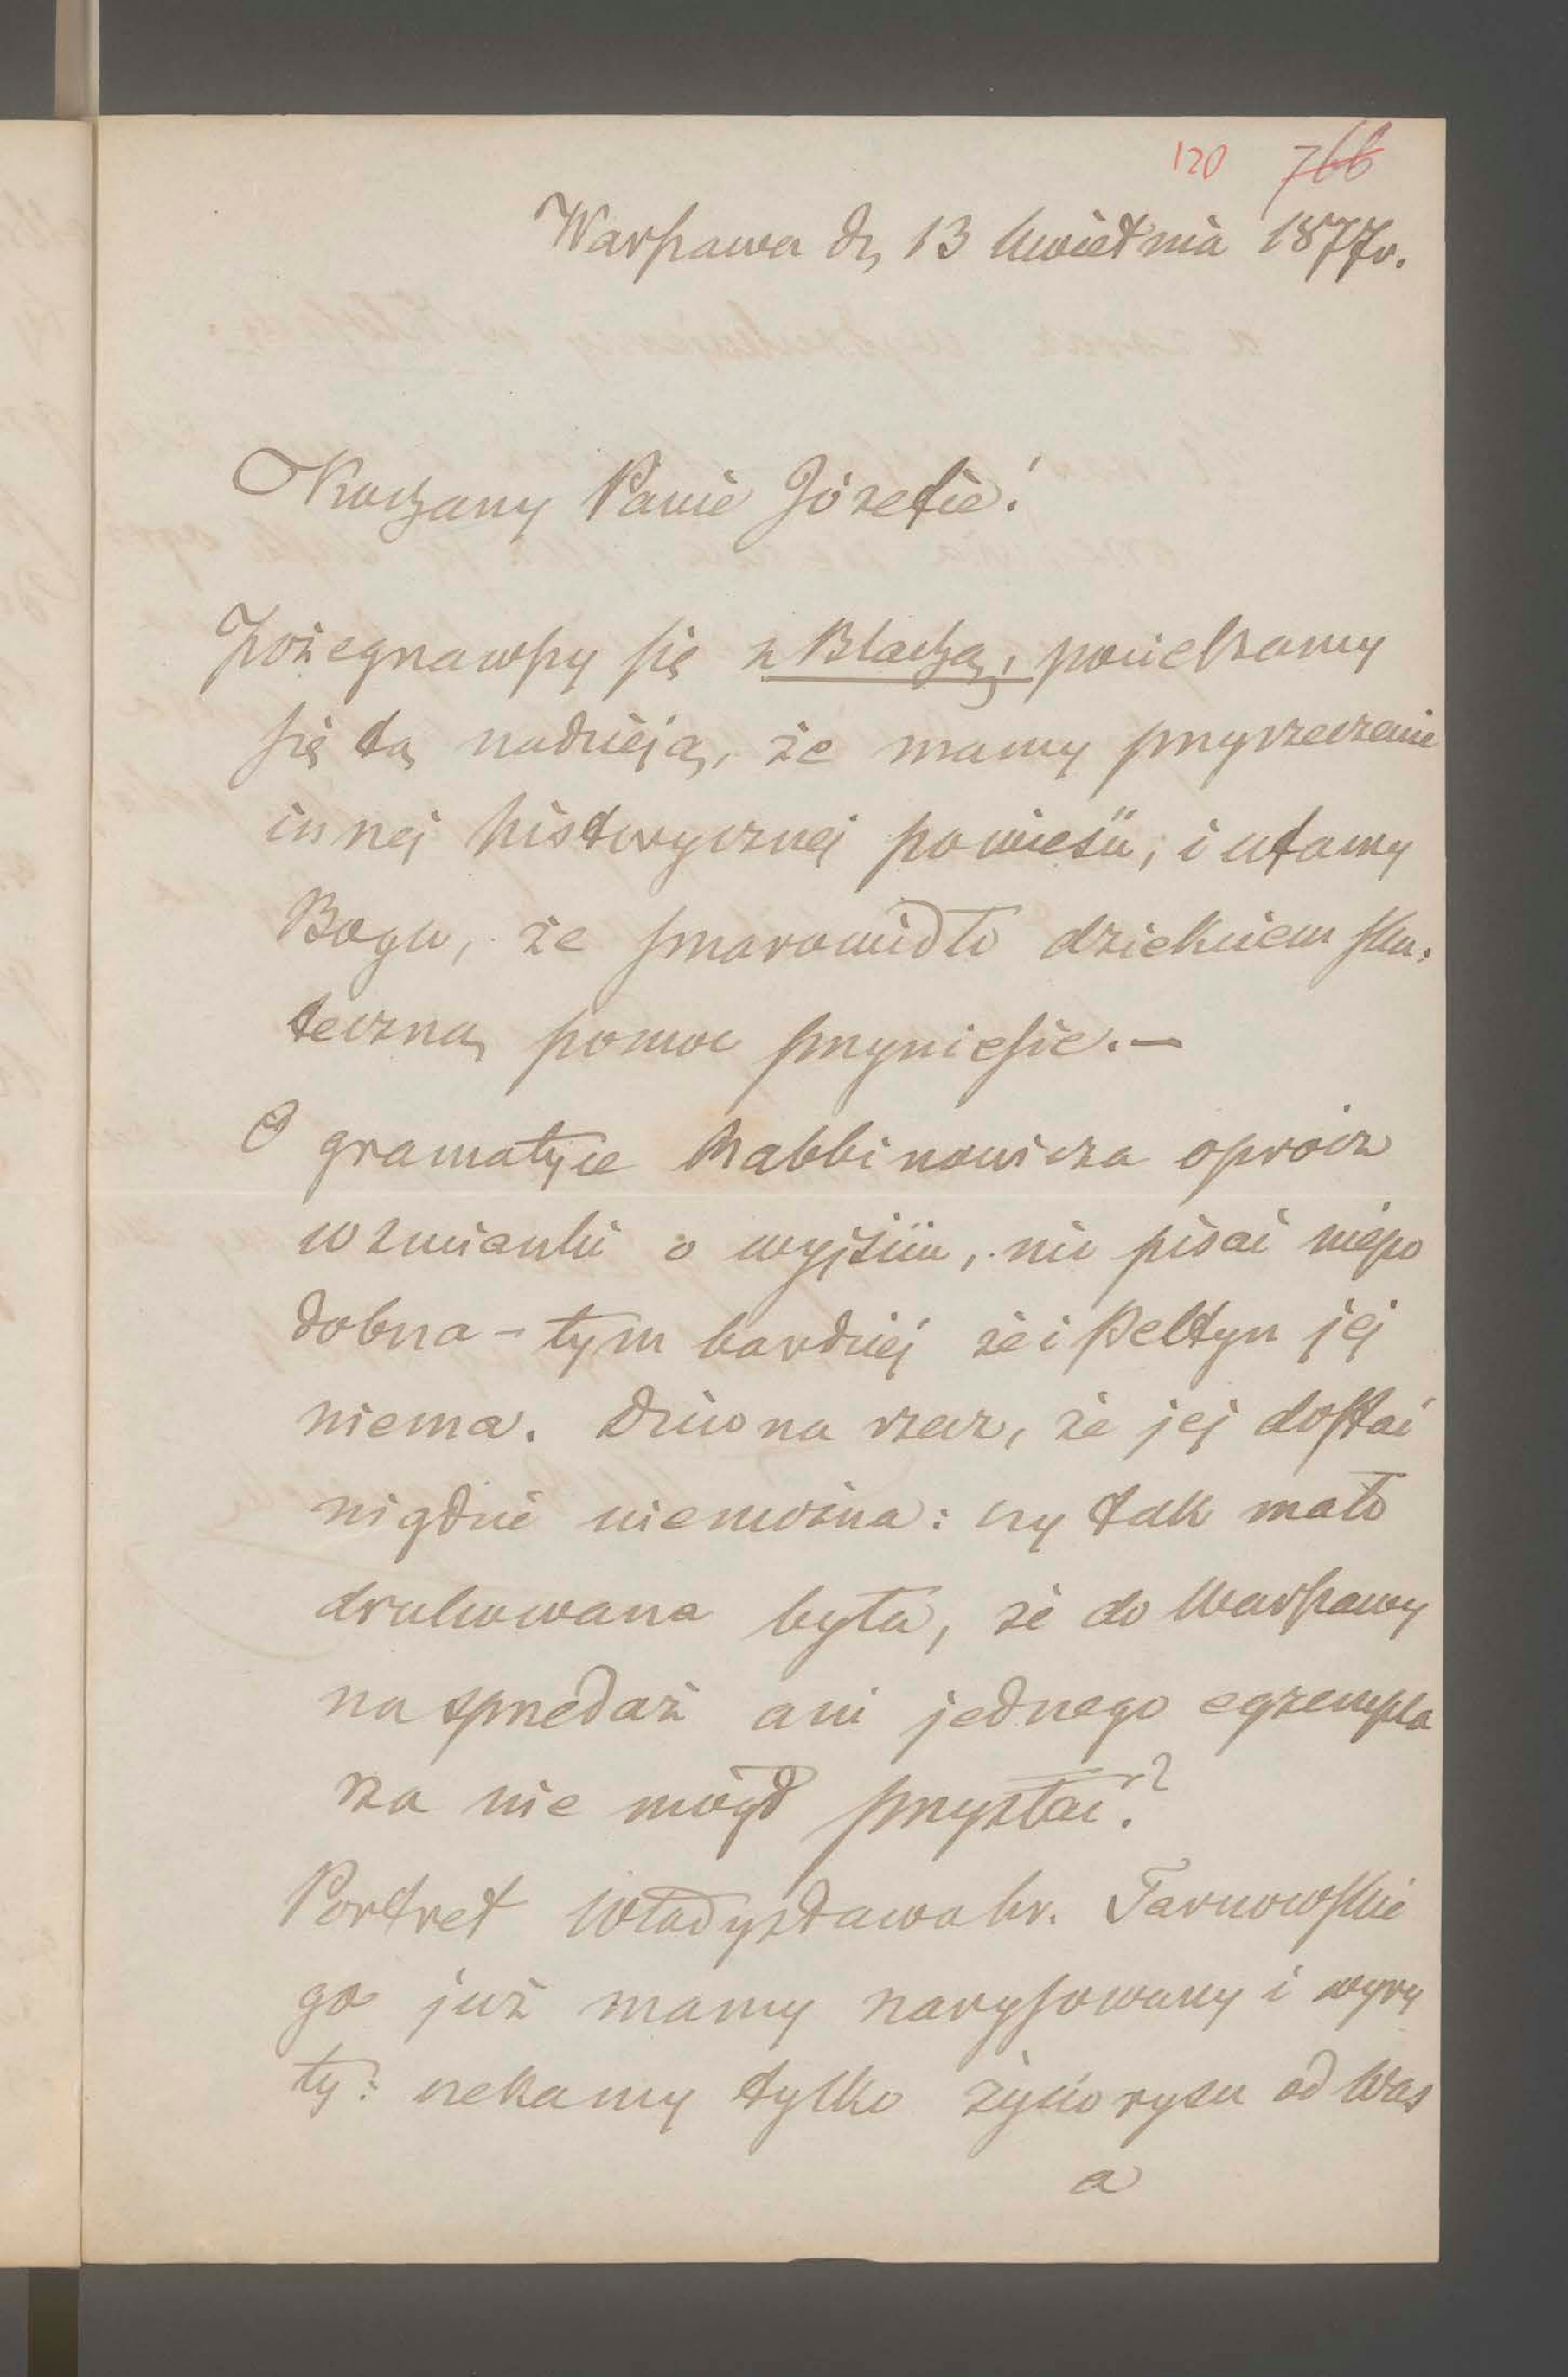 120 766
Warszawa d, 13 kwietnia 1877 r.
Kochany Panie Józefie!
Pożegnawszy się z Blachą, pocieszamy
się tą nadzieją, że mamy przyrzeczenie
innej historycznej powieści, i ufamy
Bogu, że smarowidło dziekciem sku-
teczną pomoc przyniesie.—
O gramatyce Rabbinowicza oprócz
wzmianki o wyjściu, nic pisać niepo
dobna - tym bardziej że i Peltyn jej
niema. Dziwna rzecz, że jej dostać
nigdzie niemożna: czy tak mało
drukowana była, że do Warszawy
na sprzedaż ani jednego egzempla
rza nie mógł przysłać?
Portret Władysława hr. Tarnowskie
go już mamy narysowany i wyry
ty: czekamy tylko życiorysu od Was
a